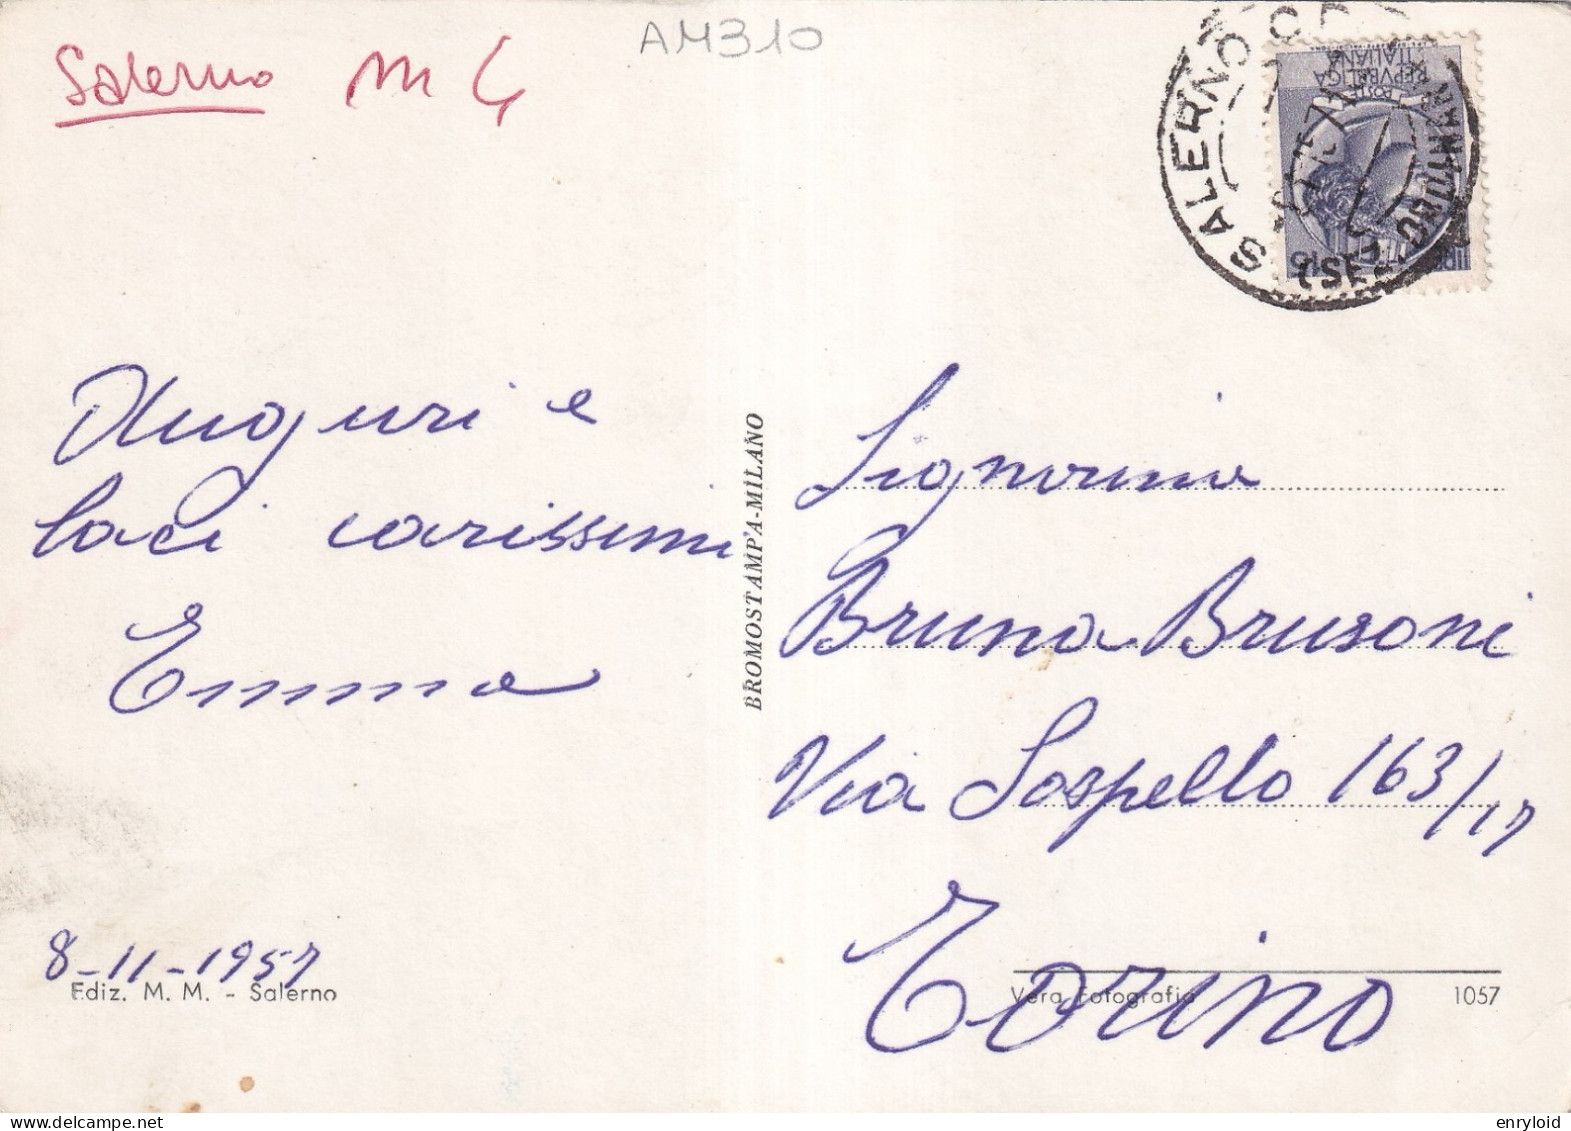 AM310
Salerno m 4
SALERNO C.P.
POSTE
REPVBBLICA
ITALIANA
Auguri e
baci carissimi
Emma
8-11-1957
Ediz. M. M. - Salerno
BROMOSTAMPA-MILANO
Signorina
Bruna Brusoni
Via Sospello 163/17
Torino
Vera Fotografia 1057
enryloid